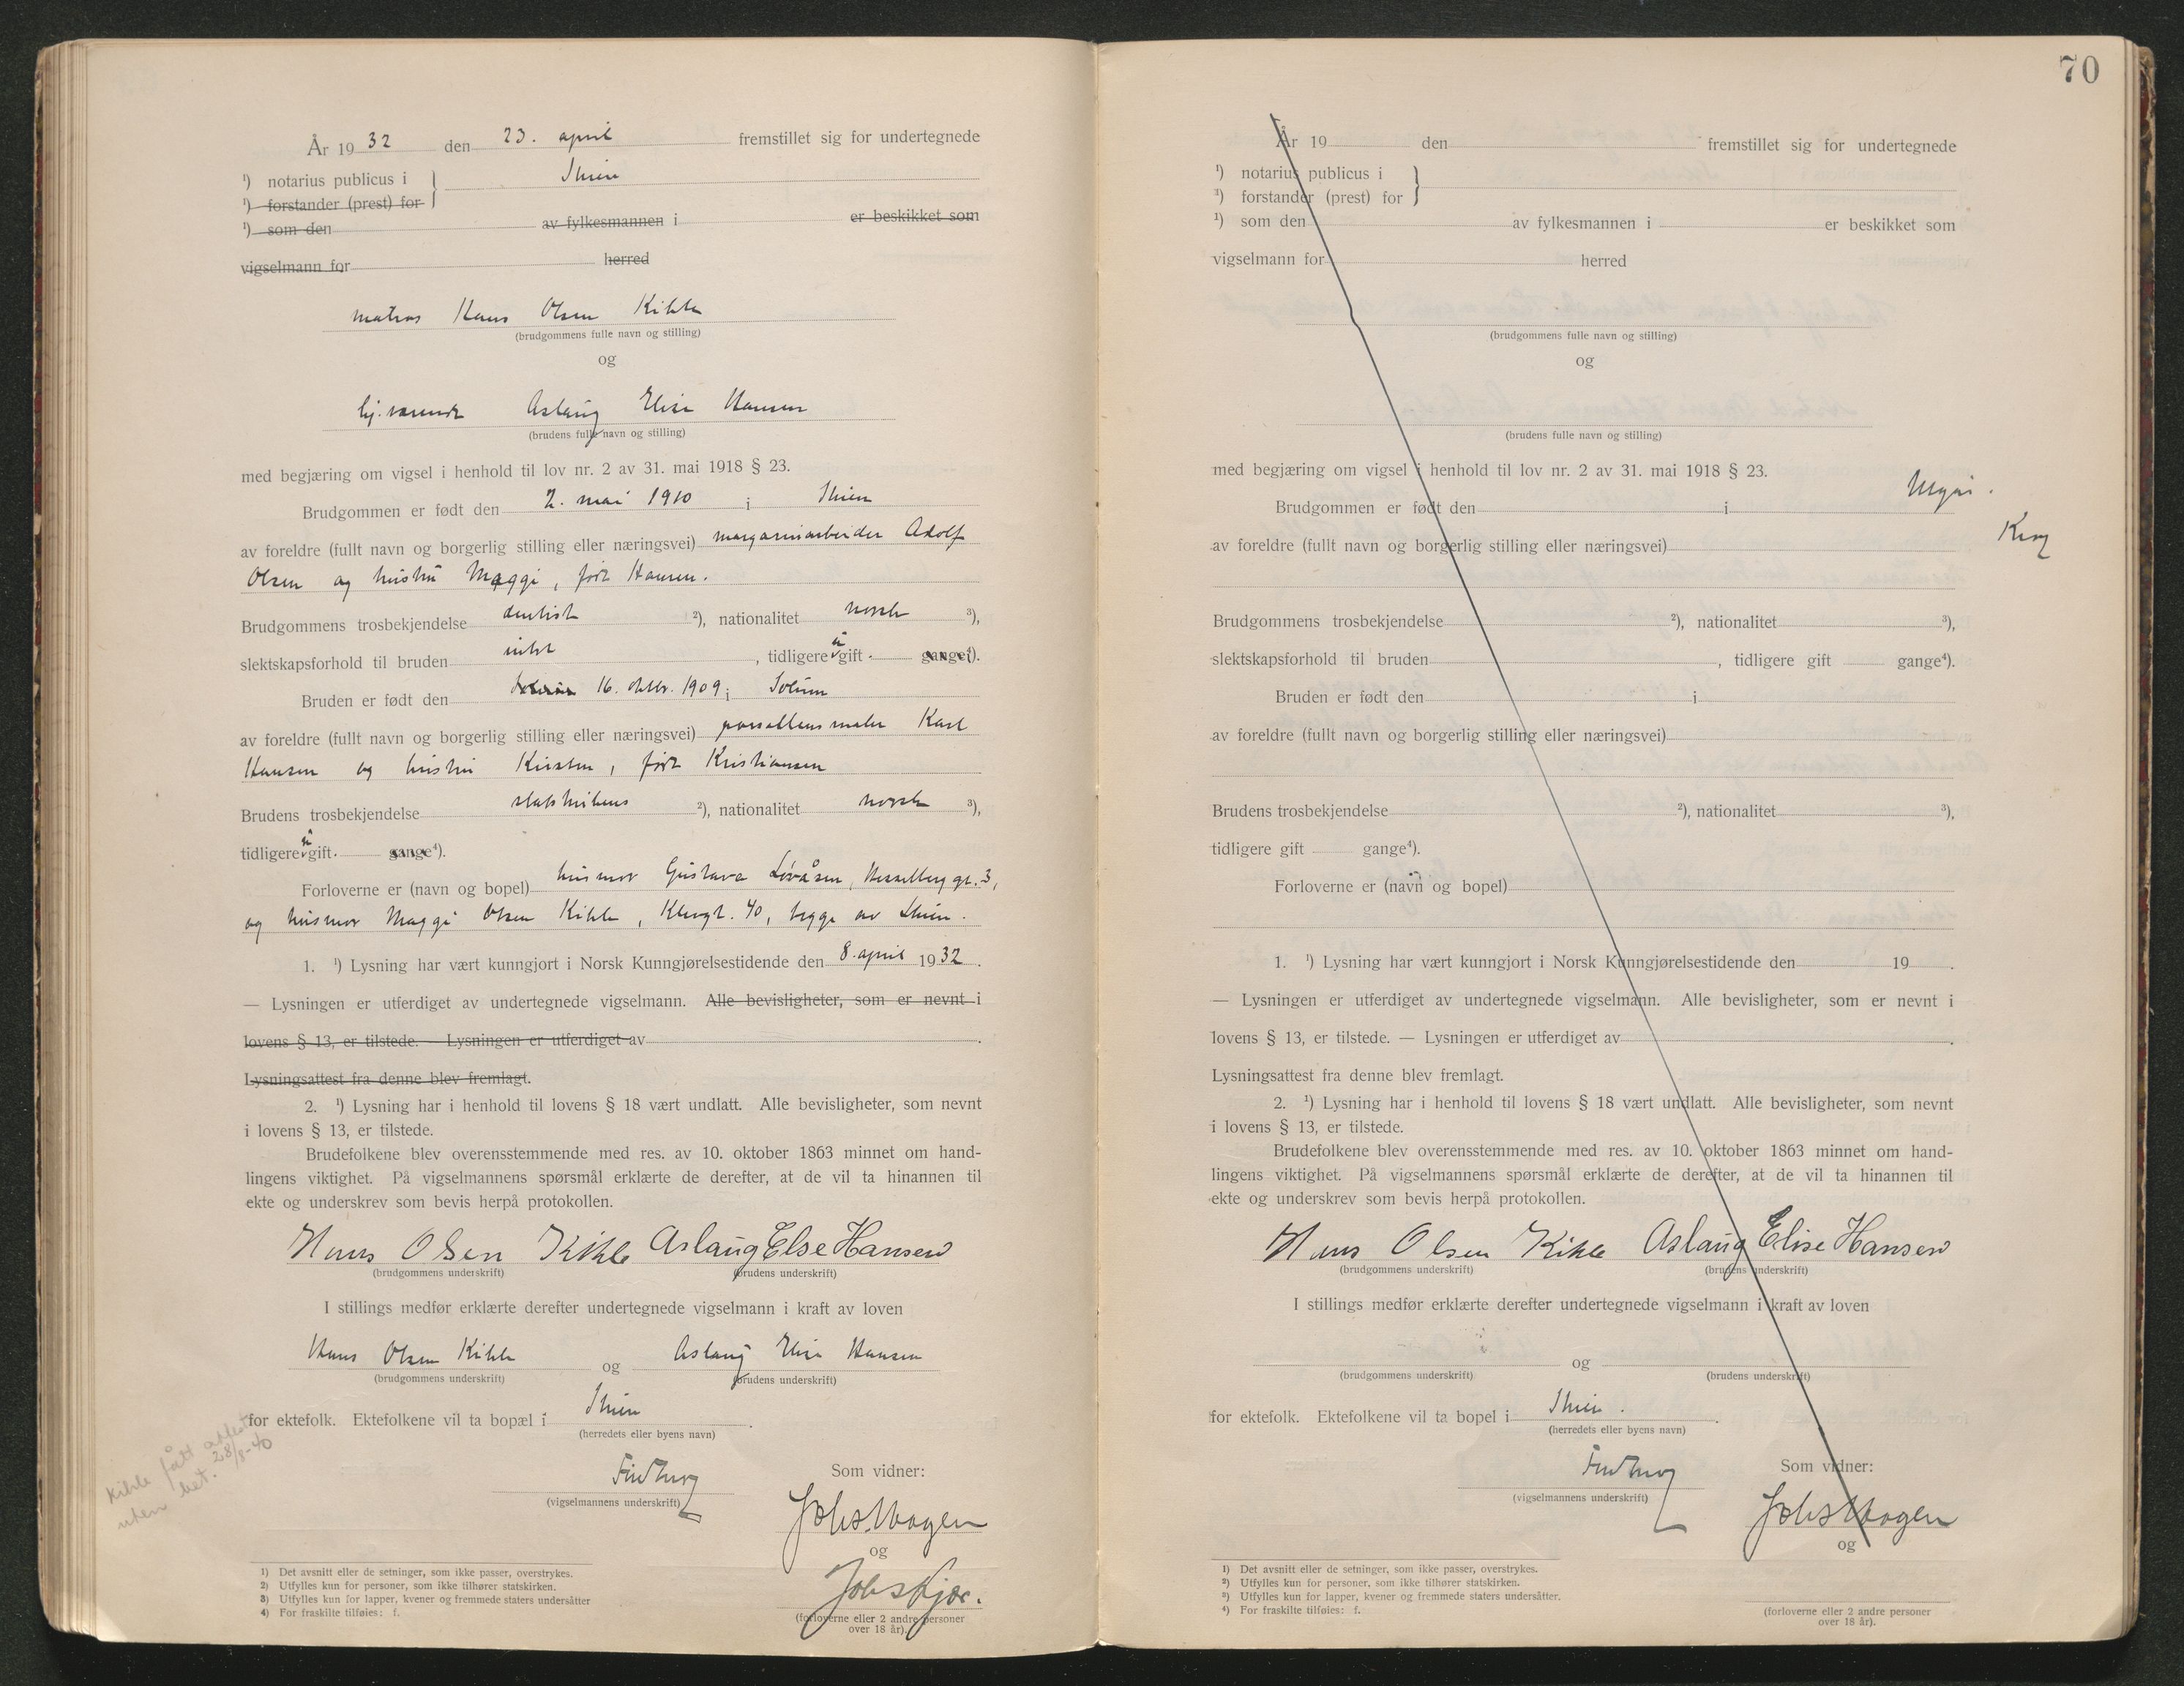 År 19 32 den 23. april fremstillet sig for undertegnede
¹) notarius publicus i } Skien
¹) forstander (prest) for
¹) som den av fylkesmannen i er beskikket som
vigselmann for herred
matros Hans Olsen Kihle
(brudgommens fulle navn og stilling)
og
hj. værende Aslaug Elise Hansen
(brudens fulle navn og stilling)
med begjæring om vigsel i henhold til lov nr. 2 av 31. mai 1918 § 23.
Brudgommen er født den 2. mai 1910 i Skien
av foreldre (fullt navn og borgerlig stilling eller næringsvei) margarinarbeider Adolf
Olsen og hustru Maggi, født Hansen.
Brudgommens trosbekjendelse ²), nationalitet norsk ³),
slektskapsforhold til bruden intet , tidligere ei gift . gange⁴).
Bruden er født den 16. oktbr. 1909 i Solum
av foreldre (fullt navn og borgerlig stilling eller næringsvei) porsellensmaler Karl
Hansen og hustru Kirsten, født Kristiansen
Brudens trosbekjendelse statskirkens ²), nationalitet norsk ³),
tidligere ei gift . gange⁴).
Forloverne er (navn og bopel) husmor Gustava Løvåsen, Hesselberg gt. 3,
og husmor Maggi Olsen Kihle, Klevgt. 40, begge av Skien.
1. ¹) Lysning har vært kunngjort i Norsk Kunngjørelsestidende den 8. april 19 32 .
— Lysningen er utferdiget av undertegnede vigselmann. Alle bevisligheter, som er nevnt i
lovens § 13, er tilstede. — Lysningen er utferdiget av .
Lysningsattest fra denne blev fremlagt.
2. ¹) Lysning har i henhold til lovens § 18 vært undlatt. Alle bevisligheter, som nevnt
i lovens § 13, er tilstede.
Brudefolkene blev overensstemmende med res. av 10. oktober 1863 minnet om hand-
lingens viktighet. På vigselmannens spørsmål erklærte de derefter, at de vil ta hinannen til
ekte og underskrev som bevis herpå protokollen.
Hans Olsen Kihle Aslaug Else Hansen
(brudgommens underskrift) (brudens underskrift)
I stillings medfør erklærte derefter undertegnede vigselmann i kraft av loven
Hans Olsen Kihle og Aslaug Elise Hansen
(brudgommens underskrift) (brudens underskrift)
for ektefolk. Ektefolkene vil ta bopæl i Skien .
(herredets eller byens navn)
Kihle fått attest
uten bet. 28/8-40
Som vidner:
(vigselmannens underskrift)
Johs Wogen
og
Johs Kjær.
(forloverne eller 2 andre personer
over 18 år).
1) Det avsnitt eller de setninger, som ikke passer, overstrykes.
2) Utfylles kun for personer, som ikke tilhører statskirken.
3) Utfylles kun for lapper, kvener og fremmede staters undersåtter
4) For fraskilte tilføies: f.
70
År 19 den fremstillet sig for undertegnede
¹) notarius publicus i }
³) forstander (prest) for
¹) som den av fylkesmannen i er beskikket som
vigselmann for herred
(brudgommens fulle navn og stilling)
og
(brudens fulle navn og stilling)
med begjæring om vigsel i henhold til lov nr. 2 av 31. mai 1918 § 23.
Utgår.
Brudgommen er født den i
av foreldre (fullt navn og borgerlig stilling eller næringsvei)
Brudgommens trosbekjendelse ²), nationalitet ³),
slektskapsforhold til bruden , tidligere gift gange⁴).
Bruden er født den i
av foreldre (fullt navn og borgerlig stilling eller næringsvei)
Brudens trosbekjendelse ²), nationalitet ³),
tidligere gift gange⁴).
Forloverne er (navn og bopel)
1. ¹) Lysning har vært kunngjort i Norsk Kunngjørelsestidende den 19 .
— Lysningen er utferdiget av undertegnede vigselmann. Alle bevisligheter, som er nevnt i
lovens § 13, er tilstede. — Lysningen er utferdiget av .
Lysningsattest fra denne blev fremlagt.
2. ¹) Lysning har i henhold til lovens § 18 vært undlatt. Alle bevisligheter, som nevnt
i lovens § 13, er tilstede.
Brudefolkene blev overensstemmende med res. av 10. oktober 1863 minnet om hand-
lingens viktighet. På vigselmannens spørsmål erklærte de derefter, at de vil ta hinannen til
ekte og underskrev som bevis herpå protokollen.
Hans Olsen Kihle Aslaug Elise Hansen
(brudgommens underskrift) (brudens underskrift)
I stillings medfør erklærte derefter undertegnede vigselmann i kraft av loven
og
(brudgommens underskrift) (brudens underskrift)
for ektefolk. Ektefolkene vil ta bopel i Skien .
(herredets eller byens navn)
Som vidner:
(vigselmannens underskrift)
Johs Wogen
og
(forloverne eller 2 andre personer
over 18 år).
1) Det avsnitt eller de setninger, som ikke passer, overstrykes.
2) Utfylles kun for personer, som ikke tilhører statskirken.
3) Utfylles kun for lapper, kvener og fremmede staters undersåtter.
4) For fraskilte tilføies: f.